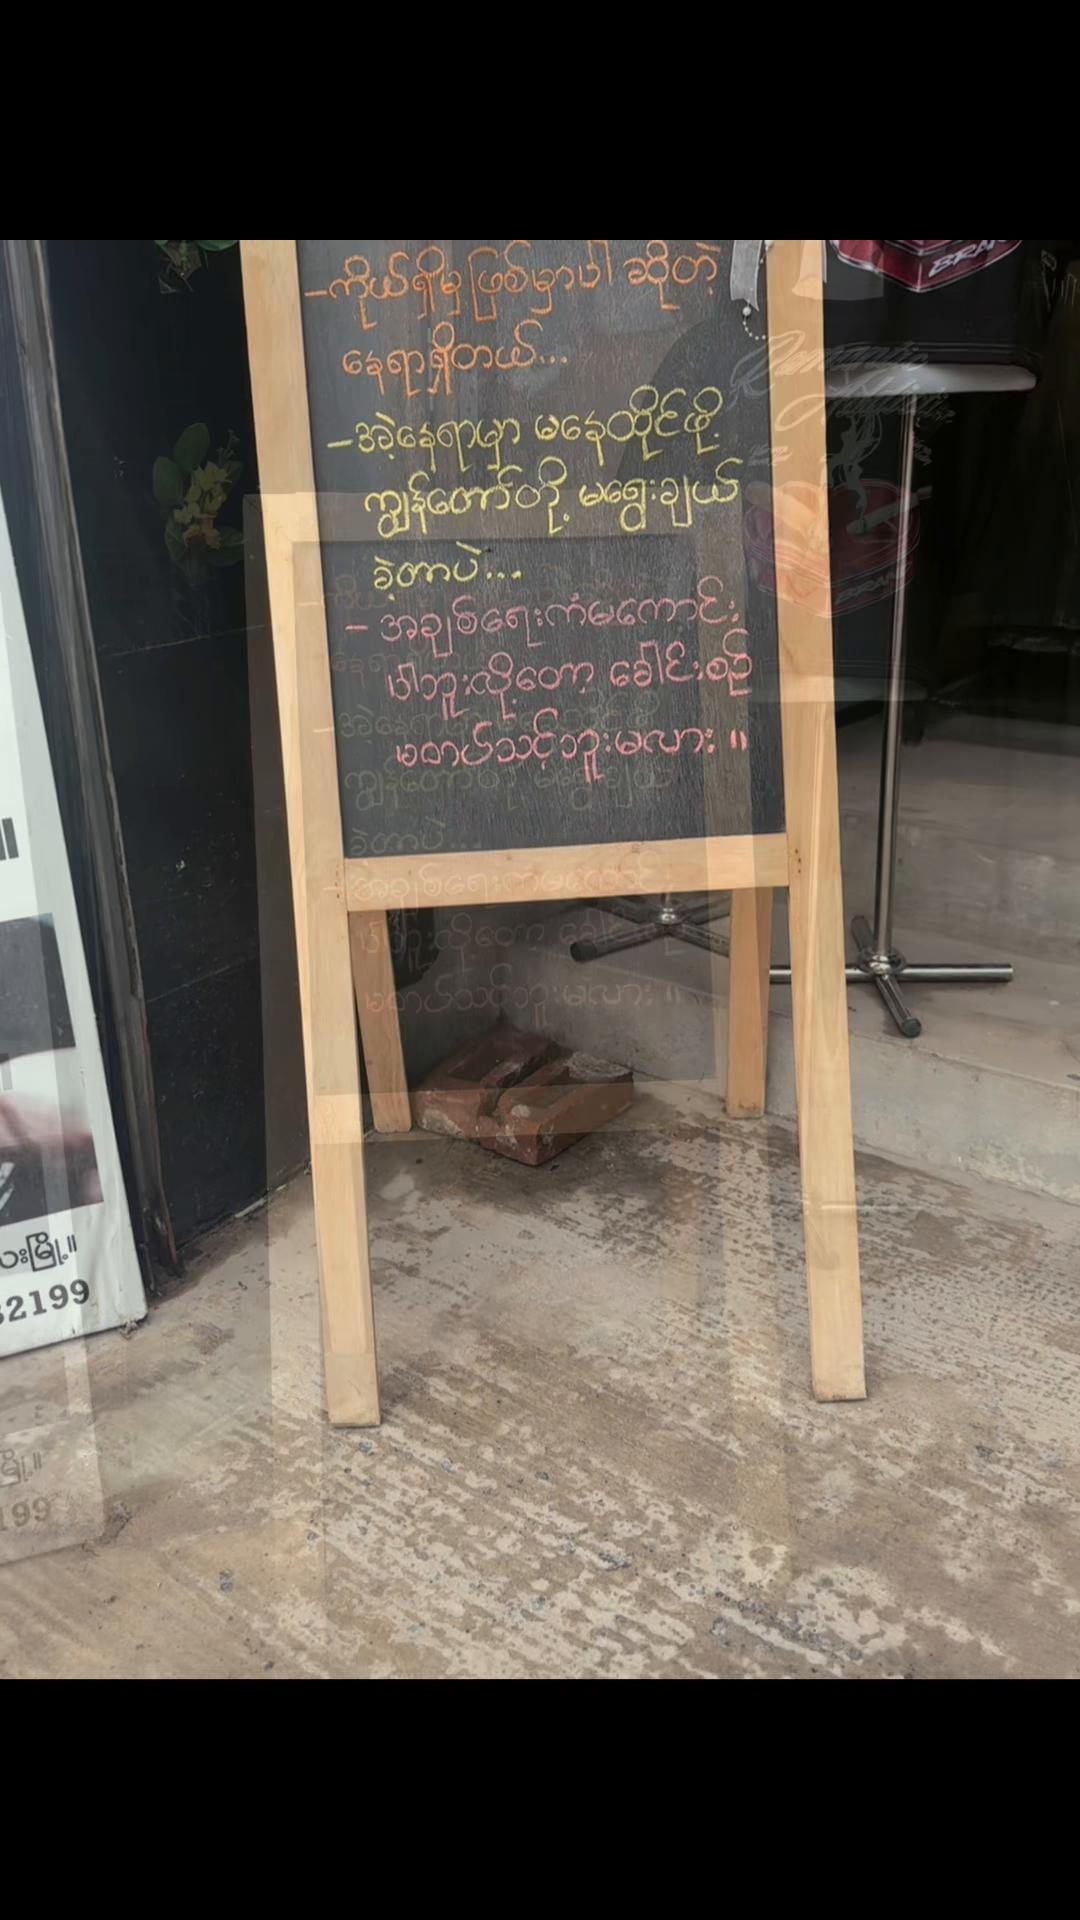 -ကိုယ်ရှိမှဖြစ်မှာပါ ဆိုတဲ့
နေရာရှိတယ်...
-အဲ့နေရာမှာ မနေထိုင်ဖို့
ကျွန်တော်တို့ မရွေးချယ်
ခဲ့တာပဲ...
- အချစ်ရေးကံမကောင်း
ပါဘူးလို့တော့ ခေါင်းစဉ်
မတပ်သင့်ဘူးမလား ။
BRAN
32199